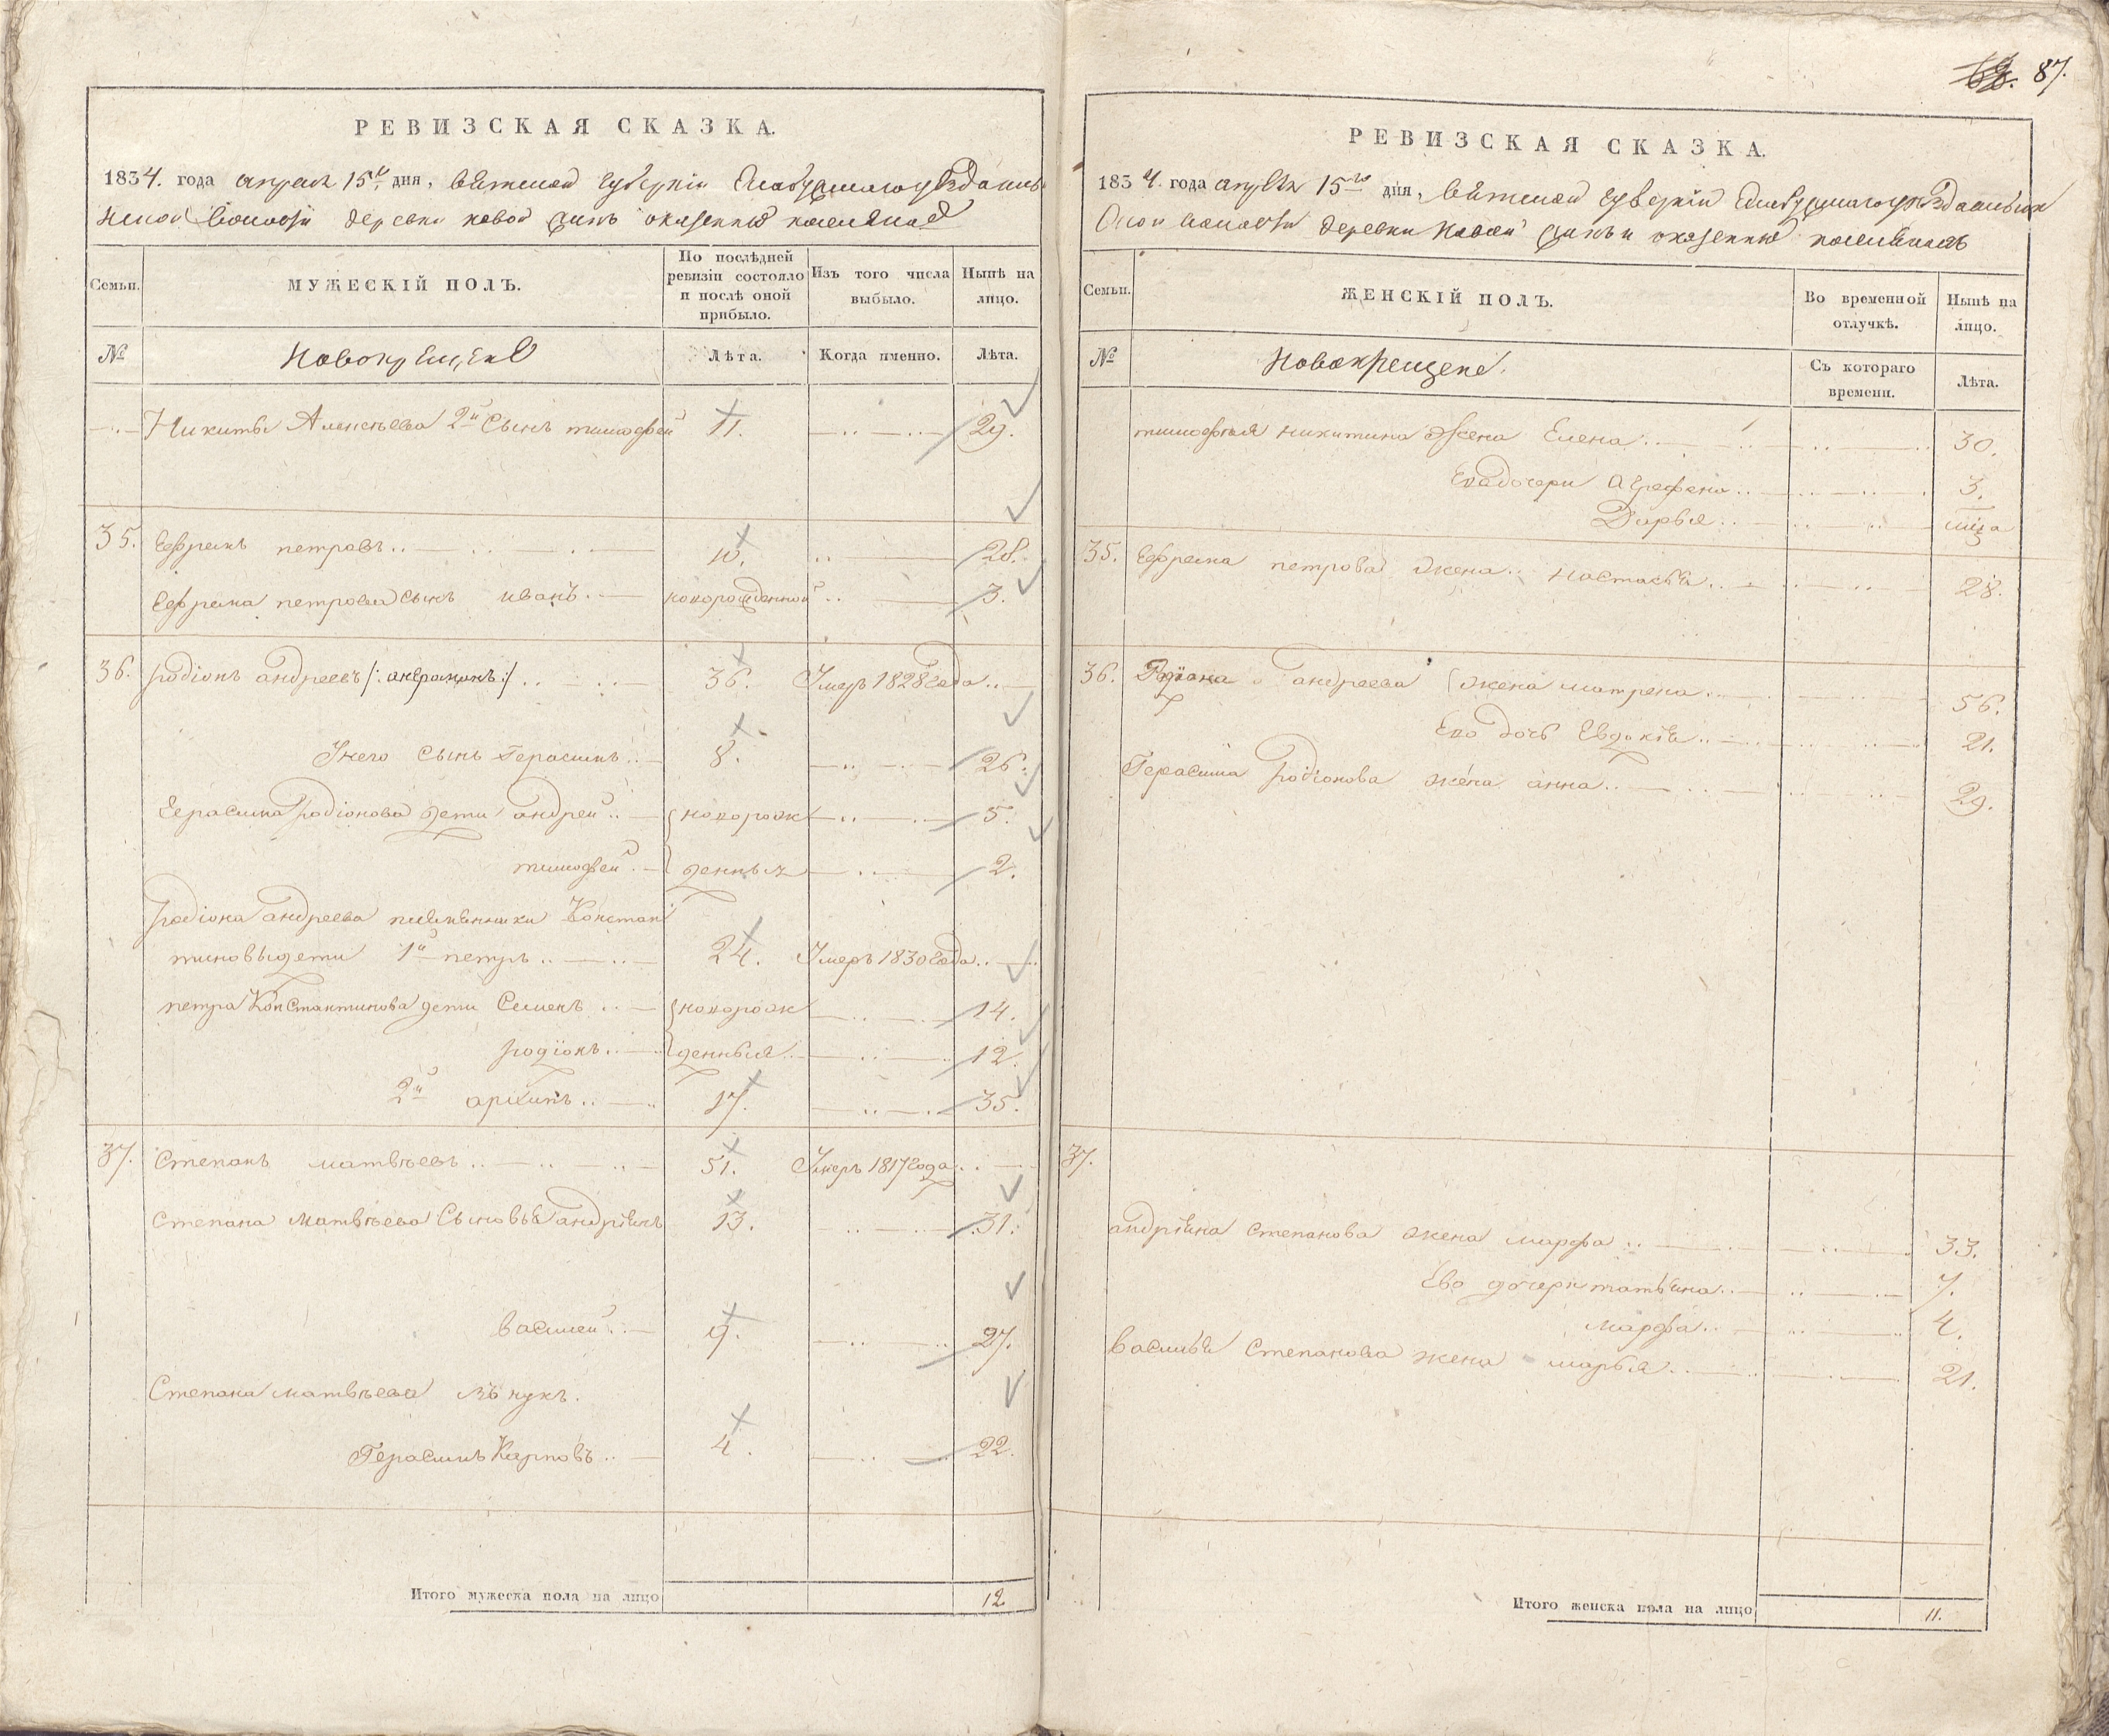 68. 87.
РЕВИЗСКАЯ СКАЗКА.
1834. года апреля 15го дня, Вятской губернiи Елабужскаго уѣзда
волости деревни новой казенныхъ поселянъ
Семьи.
МУЖЕСКIЙ ПОЛЪ.
По послѣдней ревизiи состояло и послѣ оной прибыло.
Изъ того числа выбыло.
Нынѣ на лицо.
№
Новокрещены
Лѣта.
Когда именно.
Лѣта.
Никиты Алексѣева 2й сынъ тимофей 11. 29.
35. Ефремъ петровъ 10. 28.
Ефрема петрова сынъ иванъ новорожденной 3.
36. родiонъ андреевъ /: :/ 36. Умеръ 1828 года
У него сынъ Герасимъ 8. 26.
Герасима родiонова дети андрей новорож 5.
тимофей денныя 2.
родiона андреева племянники Констан
тиновы дети 1й петръ 24. Умеръ 1830 года
петра Константинова дети Семенъ новорож 14.
родiонъ денныя 12.
2й архипъ 17. 35.
37. Степанъ матвѣевъ 51. Умеръ 1817 года
Степана матвѣева Сыновья андрiянъ 13. 31.
василей 9. 27.
Степана матвѣева внукъ.
Герасимъ Карповъ 4. 22.
Итого мужеска пола на лицо 12.
РЕВИЗСКАЯ СКАЗКА.
1834. года апреля 15го дня, Вятской губернiи Елабужскаго уѣзда
волости деревни Новой казенныхъ поселянъ
Семьи.
ЖЕНСКIЙ ПОЛЪ.
Во временной отлучкѣ.
Нынѣ на лицо.
№
Новокрещены.
Съ котораго времени.
Лѣта.
тимофея никитина жена Елена 30.
Ево дочери Аграфена 3.
Дарья
35. Ефрема петрова жена настасья 28.
36. Родiона андреева жена матрена 56.
Ево дочь Евдокiя 21.
Герасима родiонова жена анна 29.
37.
андрiяна степанова жена марфа 33.
Ево дочери татьяна 7.
марфа 4.
василья Степанова жена марья 21.
Итого женска пола на лицо 11.